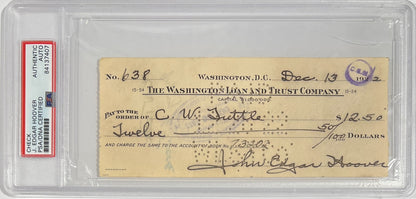 AUTHENTIC
AUTO
84137407
PSA
CHECK
J. EDGAR HOOVER
PSA/DNA CERTIFIED
No. 638 WASHINGTON, D.C. Dec. 13 1922
15-54 THE WASHINGTON LOAN AND TRUST COMPANY 15-54
PAY TO THE
ORDER OF C. W. Tuttle $12.50
Twelve 50/100 DOLLARS
AND CHARGE THE SAME TO THE ACCOUNT OF BOOK No. 13202
John Edgar Hoover